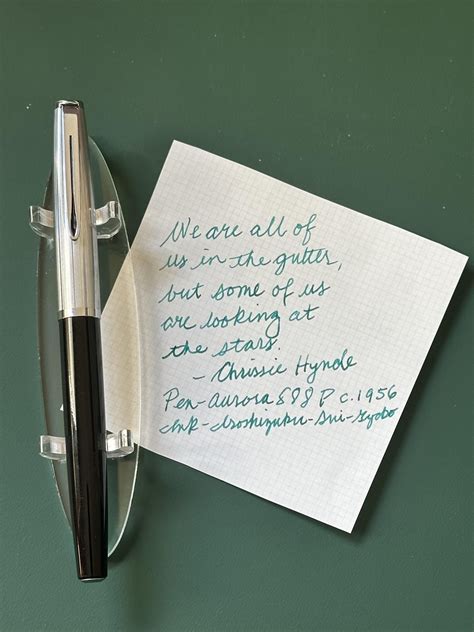 We are all of
us in the gutter,
but some of us
are looking at
the stars.
- Chrissie Hynde
Pen - Aurora 888 P c. 1956
Ink - Iroshizuku - Sui-Gyoku